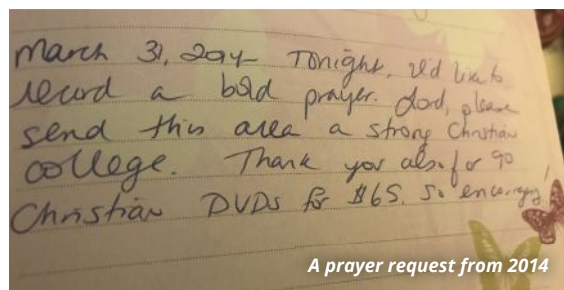 March 31, 2014 Tonight, I'd like to
record a bold prayer. Lord, please
send this area a strong Christian
college. Thank you also for 90
Christian DVDs for $65. So encouraging!
A prayer request from 2014